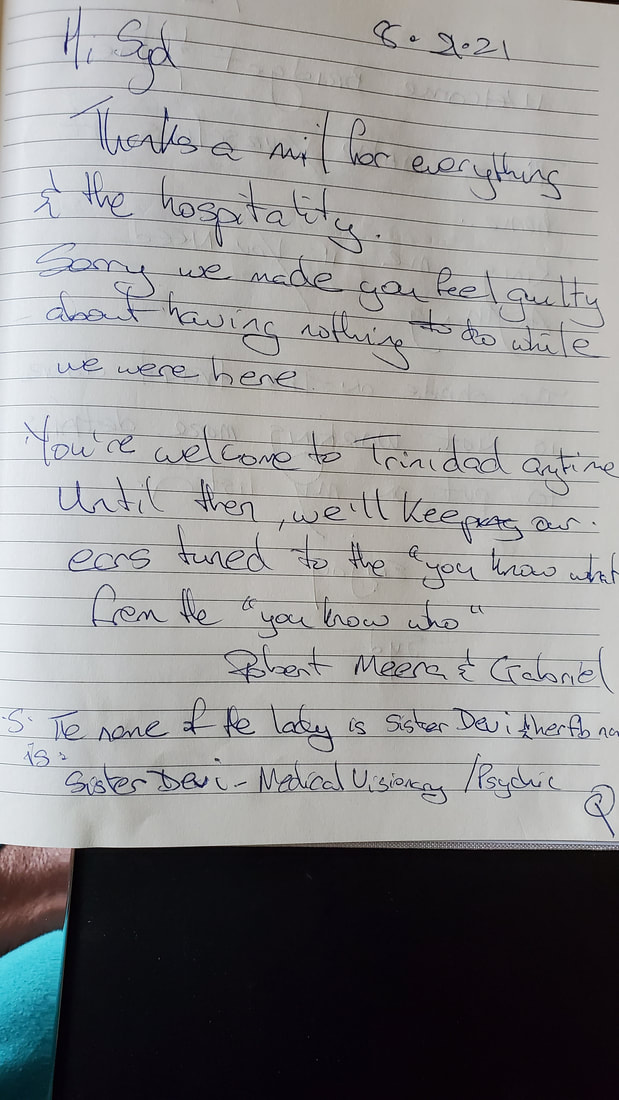 Hi Syd 8.2.21
Thanks a mil for everything
& the hospitality.
Sorry we made you feel guilty
about having nothing to do while
we were here
You're welcome to Trinidad anytime
Until then, we'll keep our
ears tuned to the "you know what
from the "you know who"
Robert Meera & Gabriel
.S. The name of the lady is Sister Devi & her fb na
is:
Sister Devi - Medical Visionary / Psychic